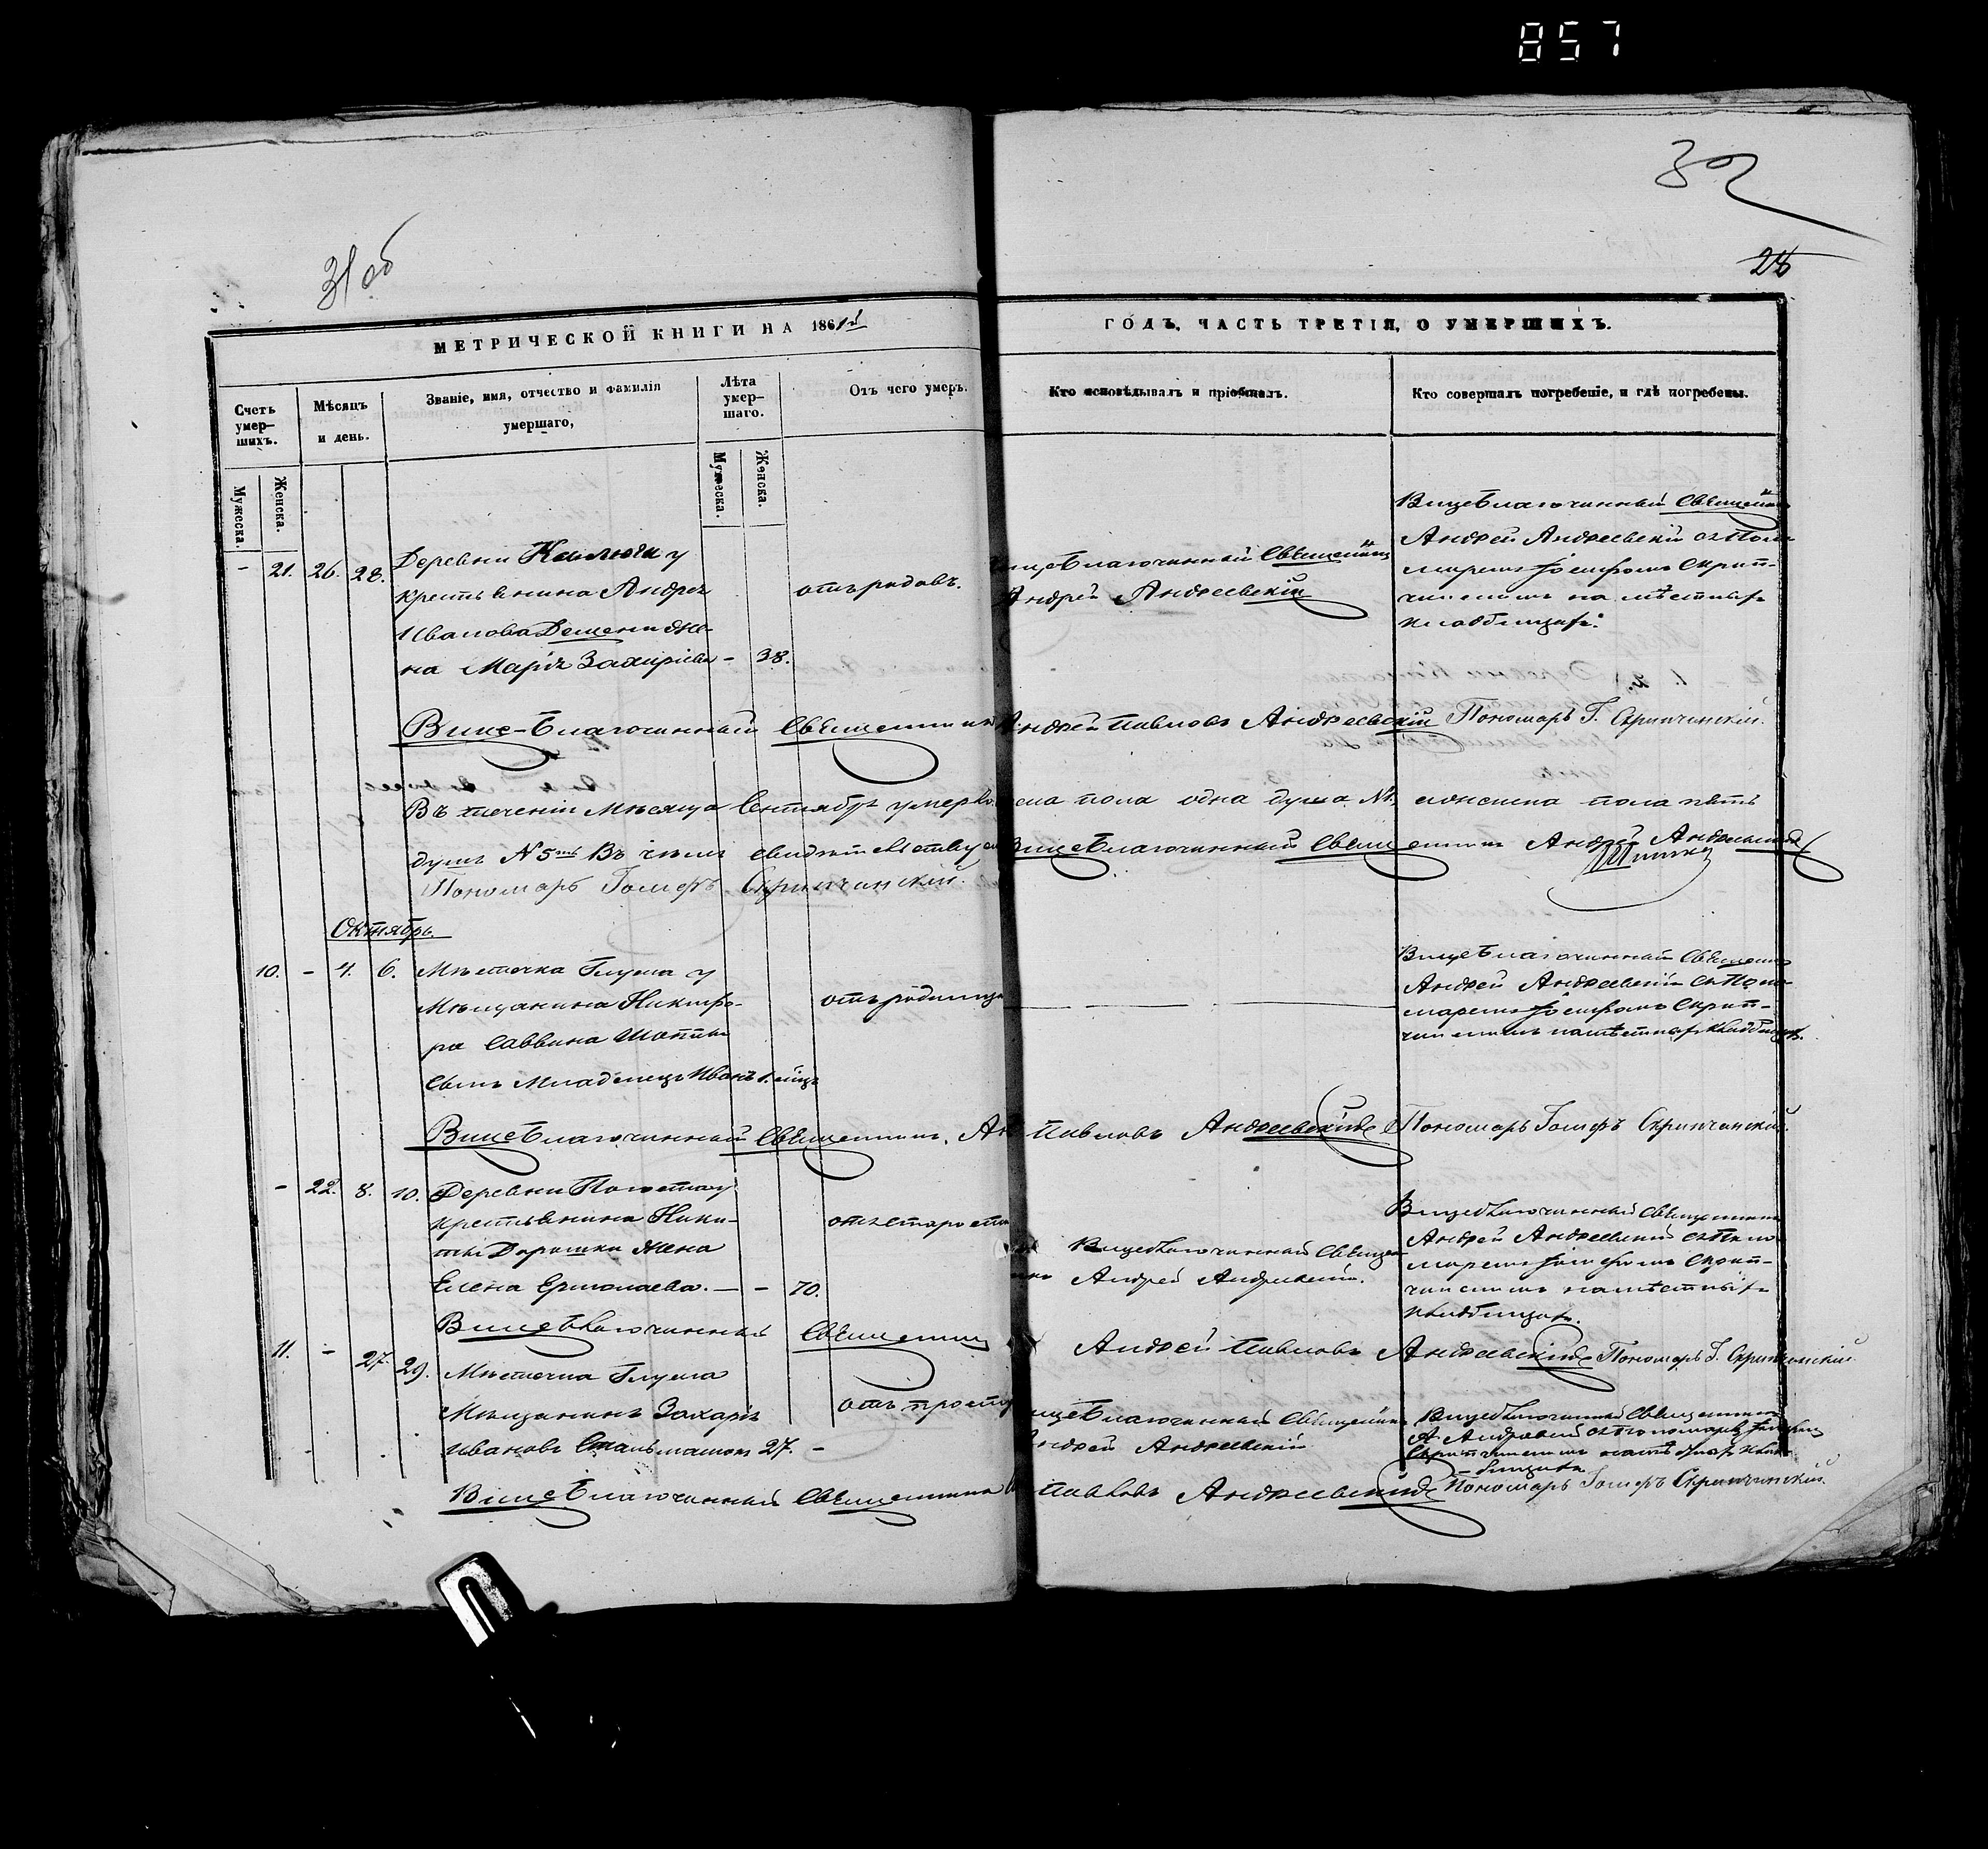 857
32
31 об
28
МЕТРИЧЕСКОЙ КНИГИ НА 1861й
ГОДЪ, ЧАСТЬ ТРЕТІЯ, О УМЕРШИХЪ.
Счетъ умер-шихъ.
Мѣсяцъ и день.
Званіе, имя, отчество и фамилія умершаго,
Лѣта умер-шаго.
Отъ чего умеръ.
Кто исповѣдывалъ и пріобщалъ.
Кто совершалъ погребеніе, и гдѣ погребены.
Мужеска.
Женска.
Мужеска.
Женска.
- 21. 26. 28.
Деревни у
крестьянина Андрея
Иванова жe-
на Марія Захаріева - 38.
отъ родовъ.
Вице Благочинный Священникъ
Андрей Андреевскій
Вице Благочинный Священникъ
Андрей Андреевскій съ Поно-
маремъ Іосифомъ Скрип-
чинскимъ на мѣстныхъ
кладбищахъ.
Вице-Благочинный Священникъ Андрей Павловъ Андреевскій Пономарь І. Скрипчинскій.
Въ теченіи Мѣсяца Сентября умерло пола одна душа №1, женска пола пять
душъ №5ть Въ чемъ свидѣтельствуемъ Вице Благочинный Священникъ Андрей Андреевскій
Пономарь Іосифъ Скрипчинскій.
Октябрь.
10. - 4. 6. Мѣстечка Глуска у
Мѣщанина Никифо-
ра Саввина
сынъ Младенецъ Иванъ
отъ родимца
Вице Благочинный Священникъ
Андрей Андреевскій съ Поно-
маремъ Іосифомъ Скрип-
чинскимъ на мѣстныхъ кладбищахъ.
Вице Благочинный Священникъ. Андрей Павловъ Андреевскій Пономарь Іосифъ Скрипчинскій.
- 22. 8. 10. Деревни у
крестьянина Ники-
ты Дорошки жена
Елена Ермолаева. - - 70.
отъ старости
Вице Благочинный Священникъ
Андрей Андреевскій.
Вице Благочинный Священникъ
Андрей Андреевскій съ Поно-
маремъ Іосифомъ Скрип-
чинскимъ на мѣстныхъ
кладбищахъ.
Вице Благочинный Священникъ Андрей Павловъ Андреевскій Пономарь І. Скрипчинскій
11. - 27. 29. Мѣстечка Глуска
Мѣщанинъ Захарій
Ивановъ 27. -
отъ простуды
Вице Благочинный Священникъ
Андрей Андреевскій
Вице Благочинный Священникъ
А Андреевскій съ Пономаремъ Іосифомъ
Скрипчинскимъ на мѣстныхъ клад-
бищахъ
Вице Благочинный Священникъ Павловъ Андреевскій Пономарь Іосифъ Скрипчинскій